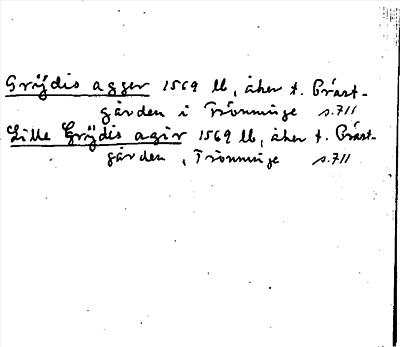 Grÿdis agger 1569 lb, åker t. Präst-
gården i Trönninge s.711
Lille Grÿdis agir 1569 lb, åker t. Präst-
gården, Trönninge s.711